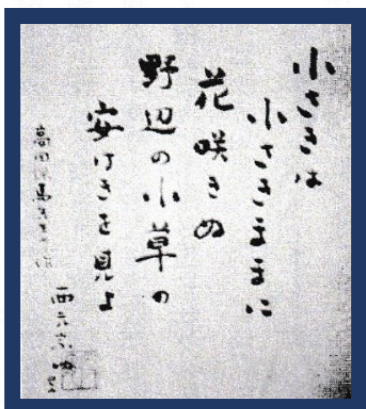 小さきは
小さきままに
花咲きぬ
野辺の小草の
安けきを見よ